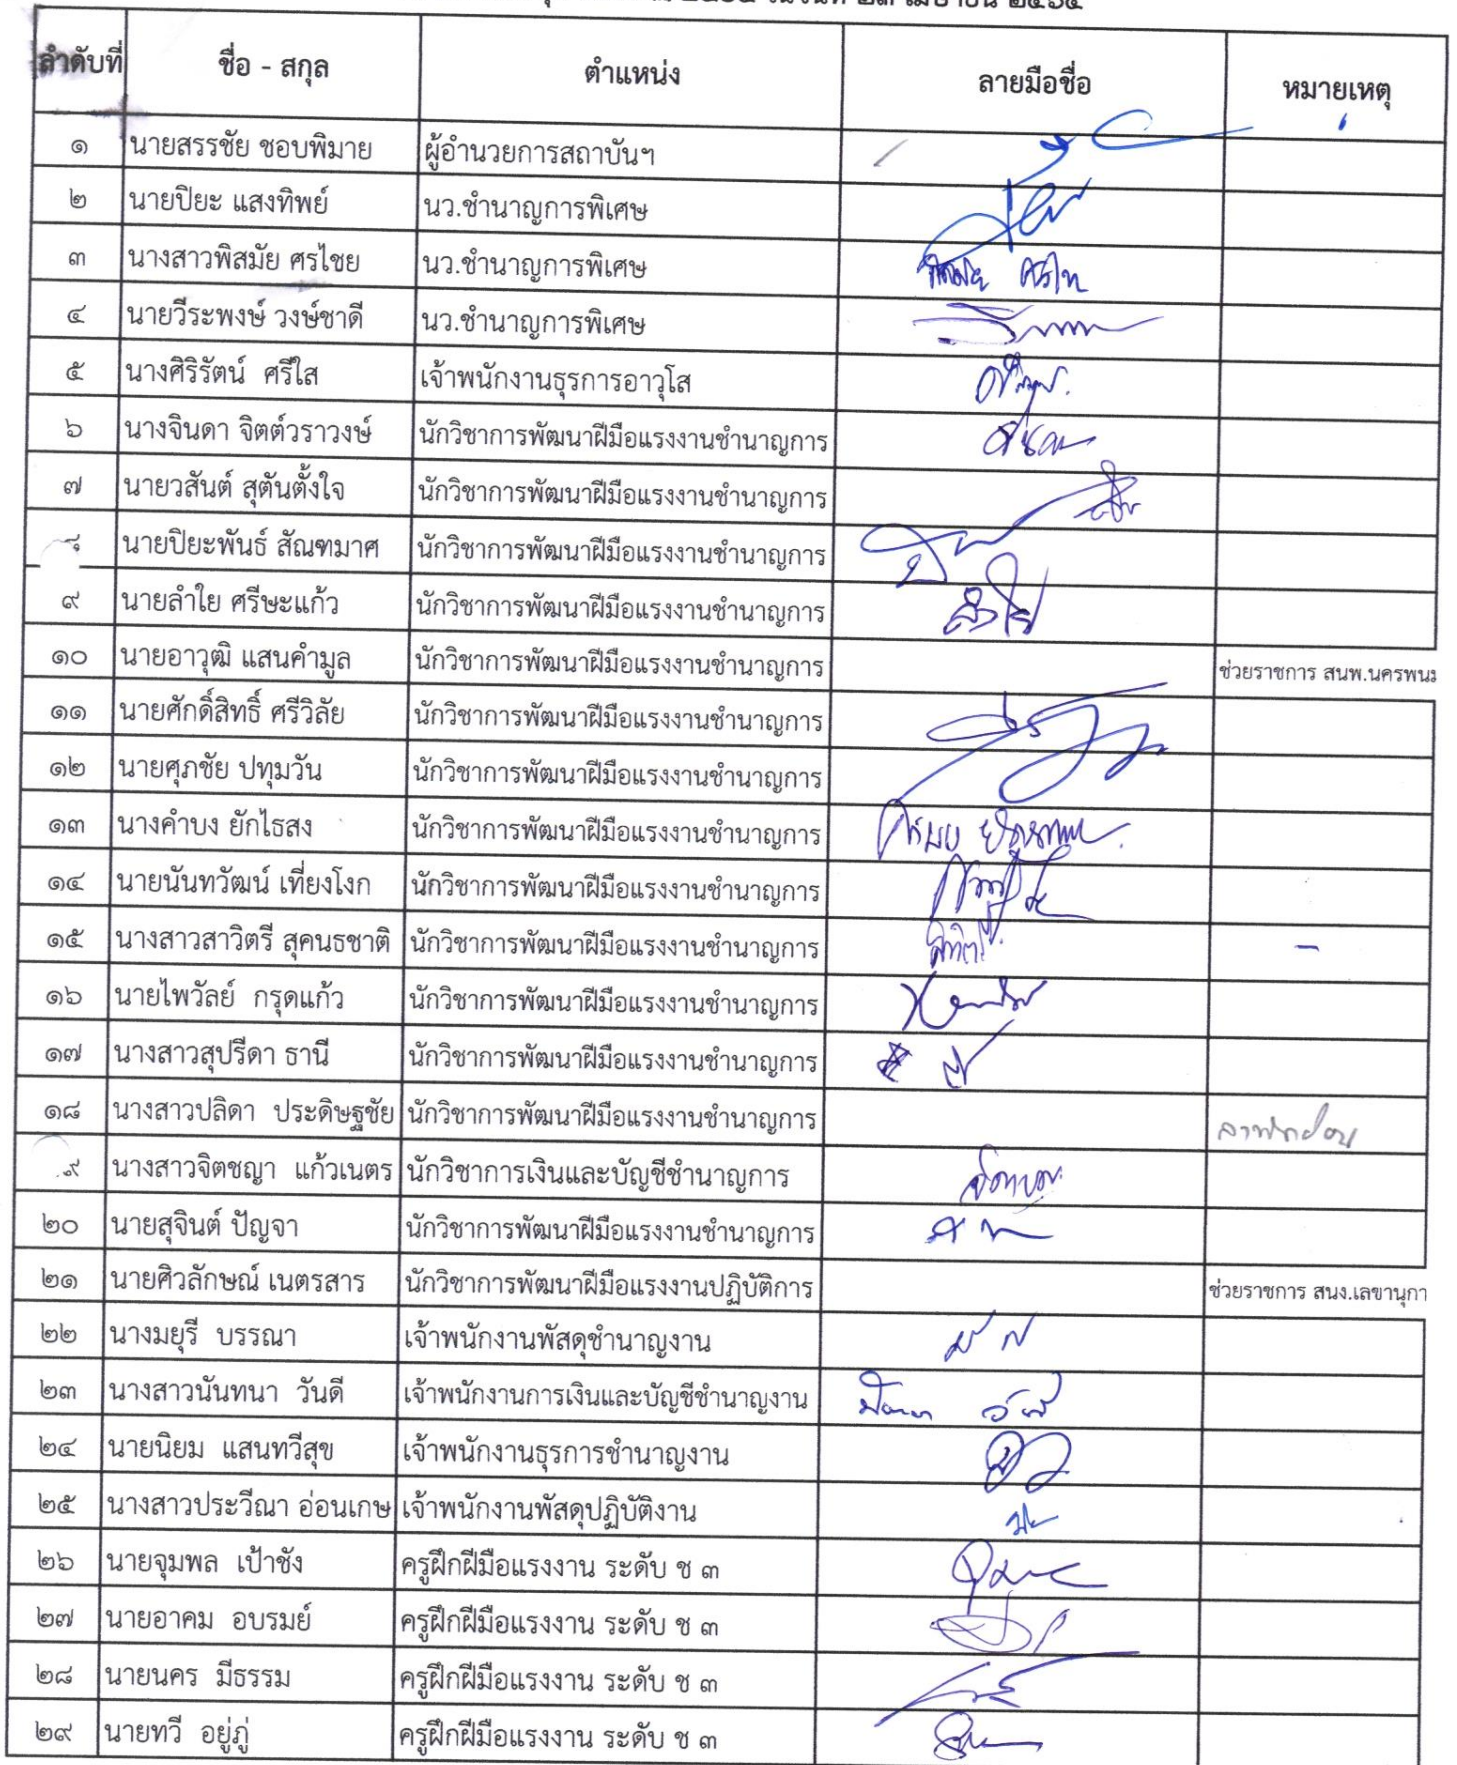 วันที่ ๒๓ เมษายน ๒๕๖๔
ลำดับที่ ชื่อ - สกุล ตำแหน่ง ลายมือชื่อ หมายเหตุ
๑ นายสรรชัย ชอบพิมาย ผู้อำนวยการสถาบันฯ
๒ นายปิยะ แสงทิพย์ นว.ชำนาญการพิเศษ
๓ นางสาวพิสมัย ศรไชย นว.ชำนาญการพิเศษ
๔ นายวีระพงษ์ วงษ์ชาดี นว.ชำนาญการพิเศษ
๕ นางศิริรัตน์ ศรีใส เจ้าพนักงานธุรการอาวุโส
๖ นางจินดา จิตต์วราวงษ์ นักวิชาการพัฒนาฝีมือแรงงานชำนาญการ
๗ นายวสันต์ สุตันตั้งใจ นักวิชาการพัฒนาฝีมือแรงงานชำนาญการ
นายปิยะพันธ์ สัณฑมาศ นักวิชาการพัฒนาฝีมือแรงงานชำนาญการ
๙ นายลำใย ศรีษะแก้ว นักวิชาการพัฒนาฝีมือแรงงานชำนาญการ ลำใย
๑๐ นายอาวุฒิ แสนคำมูล นักวิชาการพัฒนาฝีมือแรงงานชำนาญการ ช่วยราชการ สนพ.นครพน
๑๑ นายศักดิ์สิทธิ์ ศรีวิลัย นักวิชาการพัฒนาฝีมือแรงงานชำนาญการ
๑๒ นายศุภชัย ปทุมวัน นักวิชาการพัฒนาฝีมือแรงงานชำนาญการ
๑๓ นางคำบง ยักไธสง นักวิชาการพัฒนาฝีมือแรงงานชำนาญการ
๑๔ นายนันทวัฒน์ เที่ยงโงก นักวิชาการพัฒนาฝีมือแรงงานชำนาญการ
๑๕ นางสาวสาวิตรี สุคนธชาติ นักวิชาการพัฒนาฝีมือแรงงานชำนาญการ
๑๖ นายไพวัลย์ กรุดแก้ว นักวิชาการพัฒนาฝีมือแรงงานชำนาญการ
๑๗ นางสาวสุปรีดา ธานี นักวิชาการพัฒนาฝีมือแรงงานชำนาญการ
๑๘ นางสาวปลิดา ประดิษฐชัย นักวิชาการพัฒนาฝีมือแรงงานชำนาญการ ลาพักผ่อน
๙ นางสาวจิตชญา แก้วเนตร นักวิชาการเงินและบัญชีชำนาญการ
๒๐ นายสุจินต์ ปัญจา นักวิชาการพัฒนาฝีมือแรงงานชำนาญการ
๒๑ นายศิวลักษณ์ เนตรสาร นักวิชาการพัฒนาฝีมือแรงงานปฏิบัติการ ช่วยราชการ สนง.เลขานุกา
๒๒ นางมยุรี บรรณา เจ้าพนักงานพัสดุชำนาญงาน
๒๓ นางสาวนันทนา วันดี เจ้าพนักงานการเงินและบัญชีชำนาญงาน
๒๔ นายนิยม แสนทวีสุข เจ้าพนักงานธุรการชำนาญงาน
๒๕ นางสาวประวีณา อ่อนเกษ เจ้าพนักงานพัสดุปฏิบัติงาน
๒๖ นายจุมพล เป้าชัง ครูฝึกฝีมือแรงงาน ระดับ ช ๓
๒๗ นายอาคม อบรมย์ ครูฝึกฝีมือแรงงาน ระดับ ช ๓
๒๘ นายนคร มีธรรม ครูฝึกฝีมือแรงงาน ระดับ ช ๓
๒๙ นายทวี อยู่ภู่ ครูฝึกฝีมือแรงงาน ระดับ ช ๓